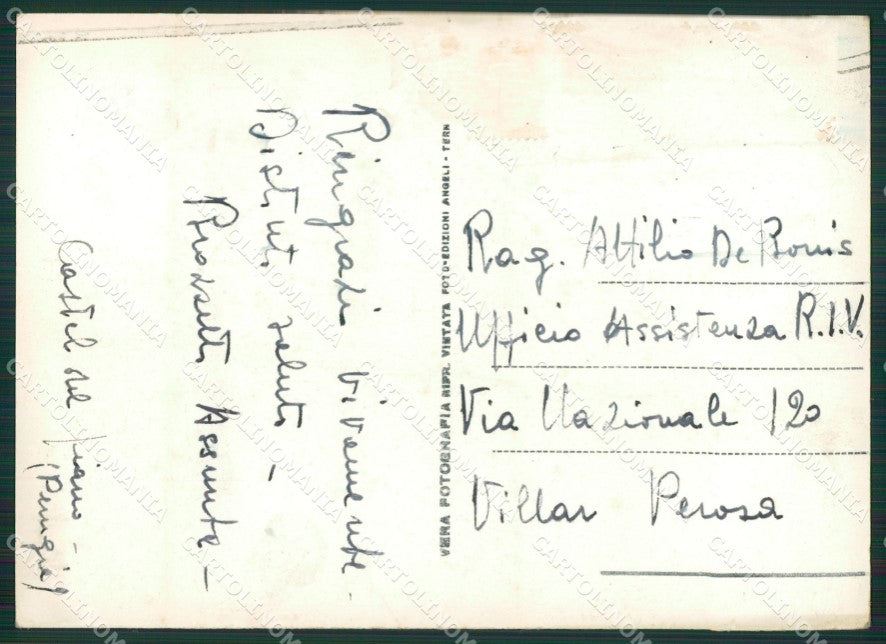 Ringrazio vivamente.
Distinti saluti -
Brozzetti Assunta -
Castel del Piano -
(Perugia)
VERA FOTOGRAFIA RIPR. VIETATA FOTO-EDIZIONI ANGELI - TERNI
Rag. Attilio De Bonis
Ufficio Assistenza R.I.V.
Via Nazionale 120
Villar Perosa
CARTOLINOMANIA